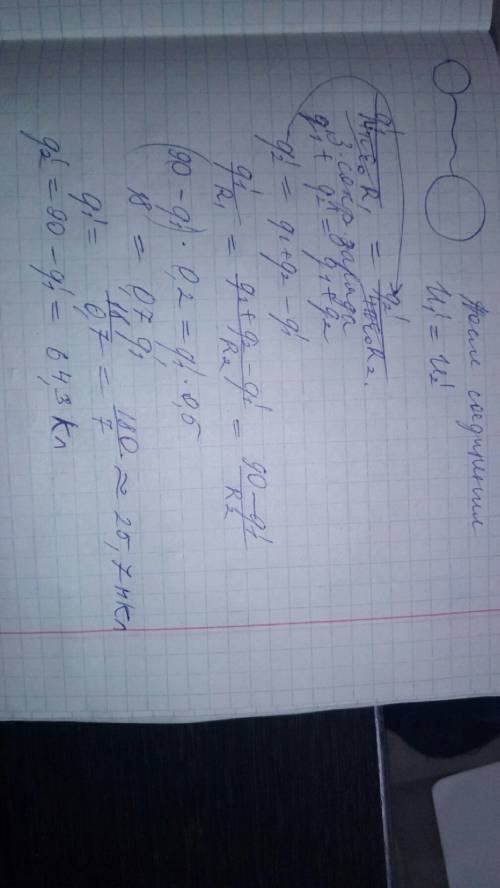 После соединения
U₁' = U₂'
q₁'/4πε₀R₁ = q₂'/4πε₀R₂.
З. сохр. заряда
q₁' + q₂' = q₁ + q₂
q₂' = q₁ + q₂ - q₁'
q₁'/R₁ = q₁ + q₂ - q₁'/R₂ = 90 - q₁'/R₂
(90 - q₁') · 0,2 = q₁' · 0,5
18 = 0,7 q₁'
q₁' = 18/0,7 = 180/7 ≈ 25,7 нКл
q₂' = 90 - q₁' = 64,3 Кл